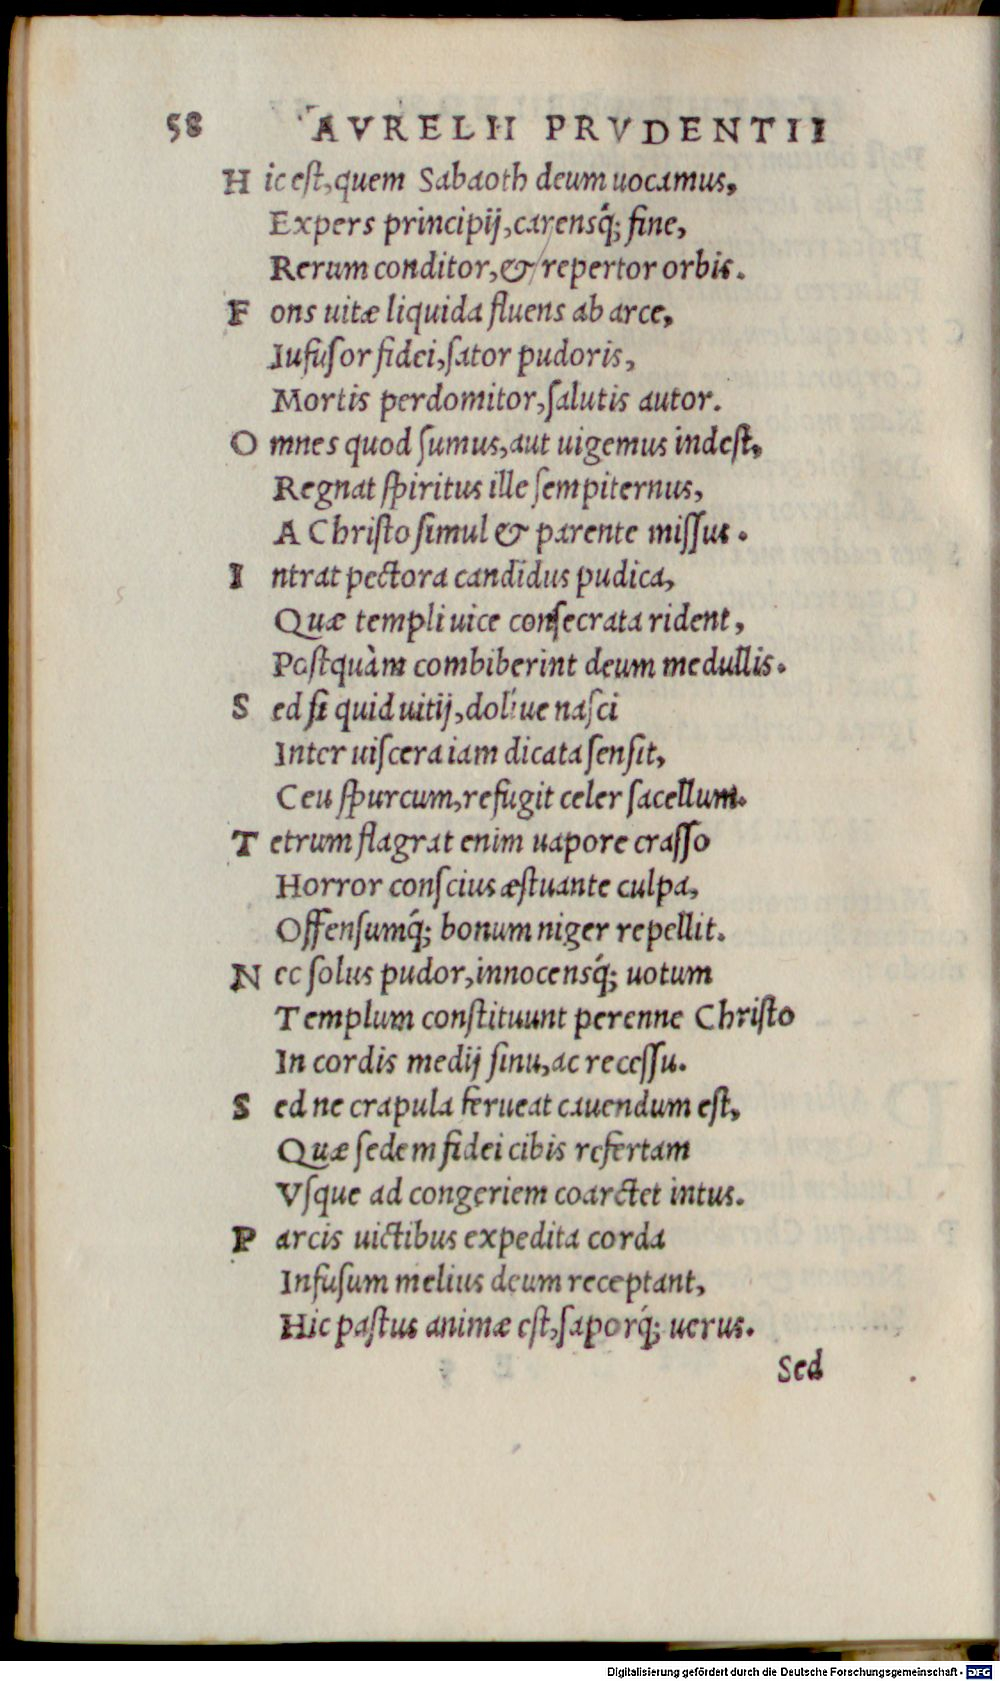 58 AVRELII PRVDENTII
H ic est, quem Sabaoth deum uocamus,
Expers principij, carensq́; fine,
Rerum conditor, & repertor orbis.
F ons uitæ liquida fluens ab arce,
Iufusor fidei, sator pudoris,
Mortis perdomitor, salutis autor.
O mnes quod sumus, aut uigemus indest,
Regnat spiritus ille sempiternus,
A Christo simul & parente missus.
I ntrat pectora candidus pudica,
Quæ templi uice consecrata rident,
Postquàm combiberint deum medullis.
S ed si quid uitij, doliue nasci
Inter uiscera iam dicata sensit,
Ceu spurcum, refugit celer sacellum.
T etrum flagrat enim uapore crasso
Horror conscius æstuante culpa,
Offensumq́; bonum niger repellit.
N ec solus pudor, innocensq́; uotum
Templum constituunt perenne Christo
In cordis medij sinu, ac recessu.
S ed ne crapula ferueat cauendum est,
Quæ sedem fidei cibis refertam
Vsque ad congeriem coarctet intus.
P arcis uictibus expedita corda
Infusum melius deum receptant,
Hic pastus animæ est, saporq́; uerus.
Sed
Digitalisierung gefördert durch die Deutsche Forschungsgemeinschaft - DFG